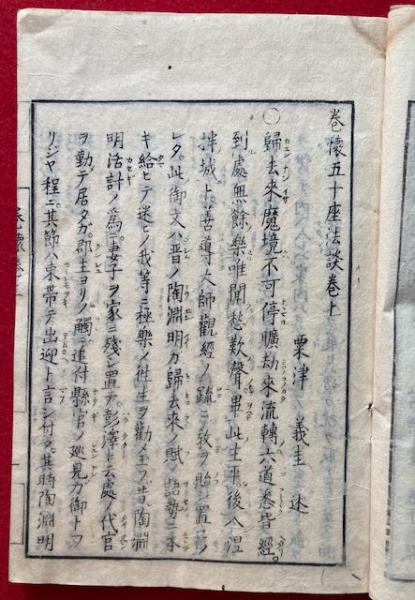 巻懐五十座法談巻上
粟津 義圭 述
○歸去來魔境不可停曠劫來流轉六道悉皆經。
到處無餘樂唯聞愁歎聲畢此生平後入涅
槃城ト善導大師觀經ノ疏ニ教ヲ貽シ置
レタ。此御文ハ晋ノ陶淵明カ歸去来ノ賦ノ語勢ニ本
キ給ヒテ迷ヒノ我等ニ極樂ノ往生ヲ勸メ玉フ昔陶淵
明活計ノ為ニ妻子ヲ家ニ殘シ置テ。彭澤ト云處ノ代官
ヲ勤テ居タガ。郡主ヨリノ觸ニ追付縣官ノ廵見カ御トフ
リジヤ程ニ。其節ハ束帯テ出迎ト言ヒ付タ。其時陶淵明